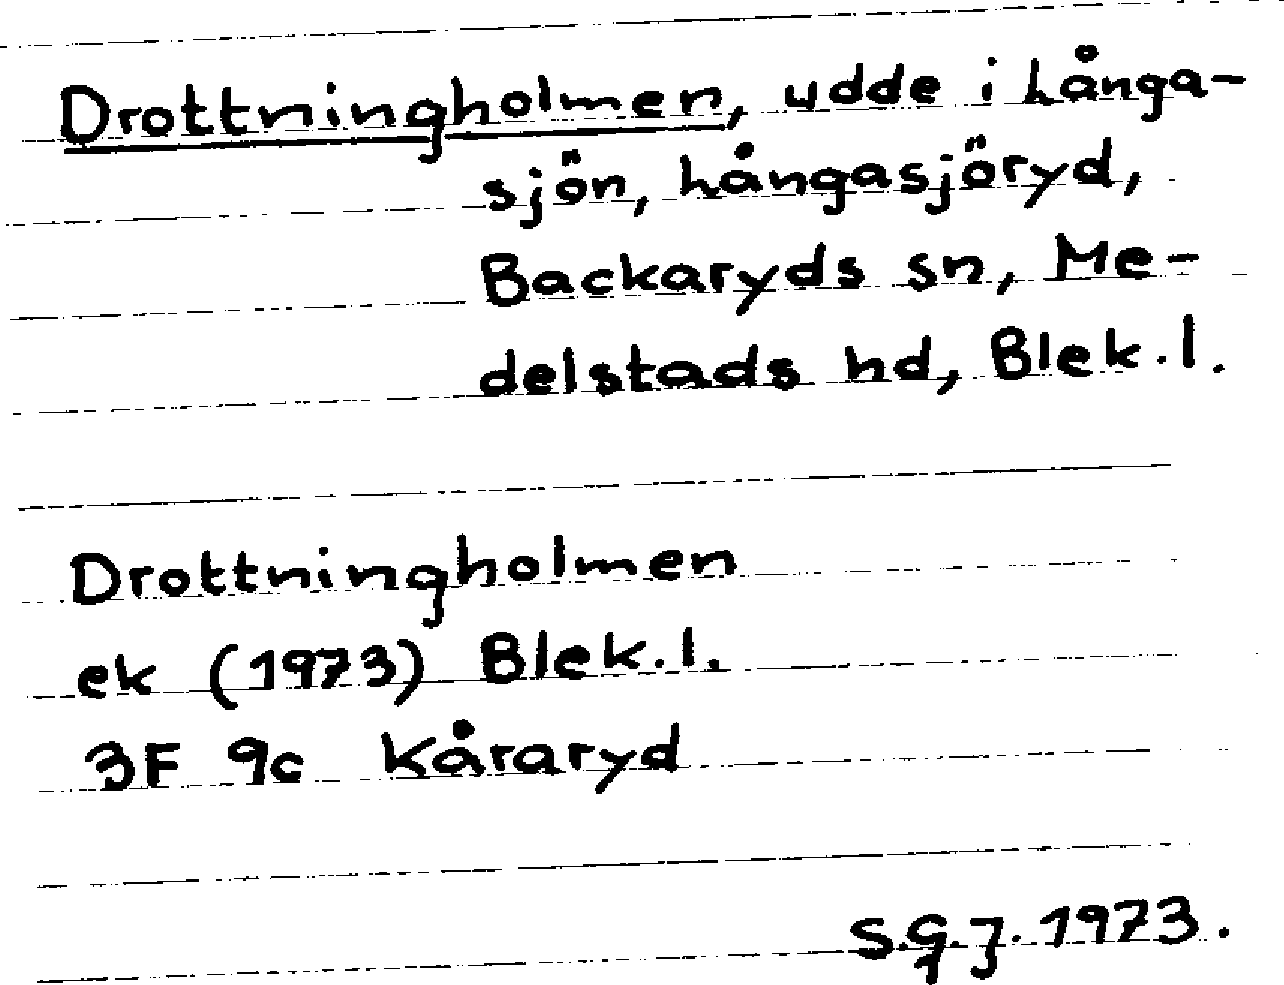 Drottningholmen, udde i Långa-
sjön, Långasjöryd,
Backaryds sn, Me-
delstads hd, Blek.l.
Drottningholmen
ek (1973) Blek.l.
3F 9c Kåraryd
S.G.J. 1973.